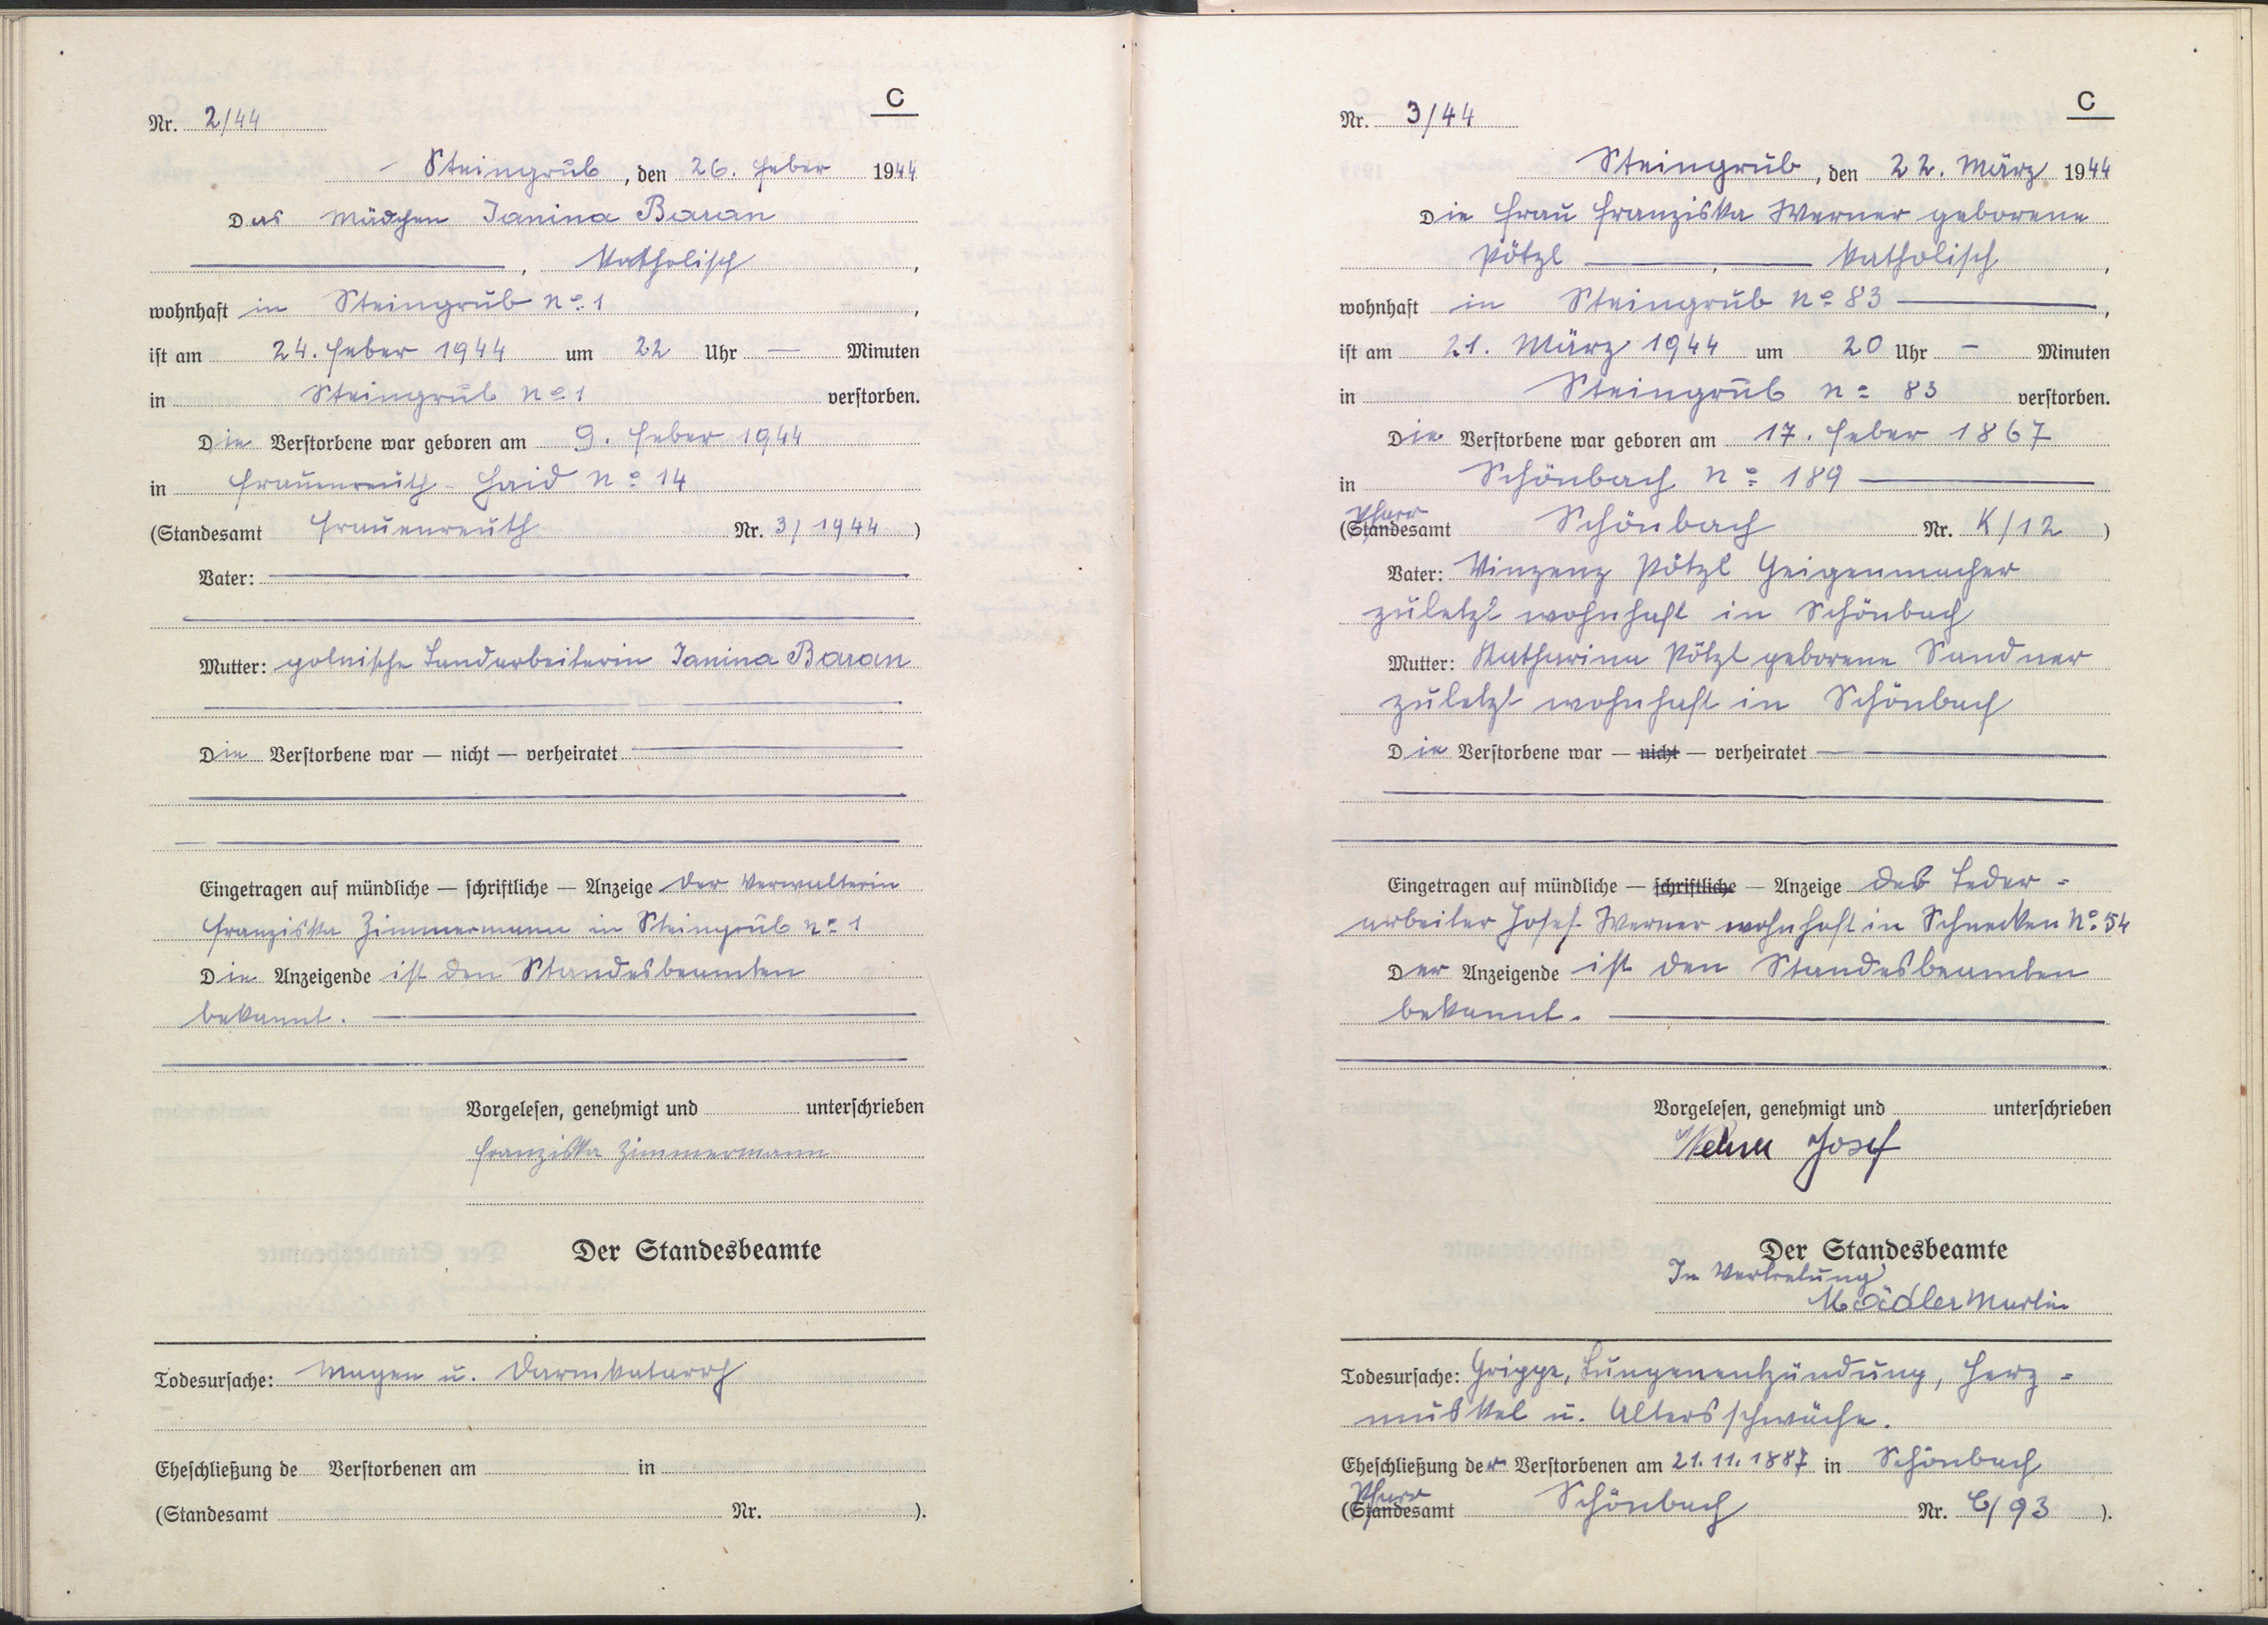 C
Nr. 2/44
Steingrub, den 26. Feber 1944
Das Mädchen Janina Baran
, katholisch,
wohnhaft in Steingrub No. 1,
ist am 24. Feber 1944 um 22 Uhr — Minuten
in Steingrub No 1 verstorben.
Die Verstorbene war geboren am 9. Feber 1944
in Frauenreuth - Haid No 14
(Standesamt Frauenreuth Nr. 3/1944)
Vater:
Mutter: polnische Landarbeiterin Janina Baran
Die Verstorbene war — nicht — verheiratet
Eingetragen auf mündliche — schriftliche — Anzeige der Verwalterin
Franziska Zimmermann in Steingrub No 1
Die Anzeigende ist den Standesbeamten
bekannt.
Vorgelesen, genehmigt und unterschrieben
Franziska Zimmermann
Der Standesbeamte
Todesursache: Magen u. Darmkatarrh
Eheschließung de Verstorbenen am in
(Standesamt Nr. ).
C
Nr. 3/44
Steingrub, den 22. März 1944
Die Frau Franziska Werner geborene
Pötzl, katholisch,
wohnhaft in Steingrub No 83,
ist am 21. März 1944 um 20 Uhr — Minuten
in Steingrub No 83 verstorben.
Die Verstorbene war geboren am 17. Feber 1867
in Schönbach No 189
Pfarr
(Standesamt Schönbach Nr. K/12)
Vater: Vinzenz Pötzl Geigenmacher
zuletzt wohnhaft in Schönbach
Mutter: Katharina Pötzl geborene Sandner
zuletzt wohnhaft in Schönbach
Die Verstorbene war — nicht — verheiratet
Eingetragen auf mündliche — schriftliche — Anzeige des Leder-
arbeiter Josef Werner wohnhaft in Schnecken No. 54
Der Anzeigende ist den Standesbeamten
bekannt.
Vorgelesen, genehmigt und unterschrieben
Werner Josef
Der Standesbeamte
In Vertretung
Mädler Martin
Todesursache: Grippe, Lungenentzündung, Herz-
muskel u. Altersschwäche.
Eheschließung der Verstorbenen am 21.11.1887 in Schönbach
Pfarr
(Standesamt Schönbach Nr. C/93).